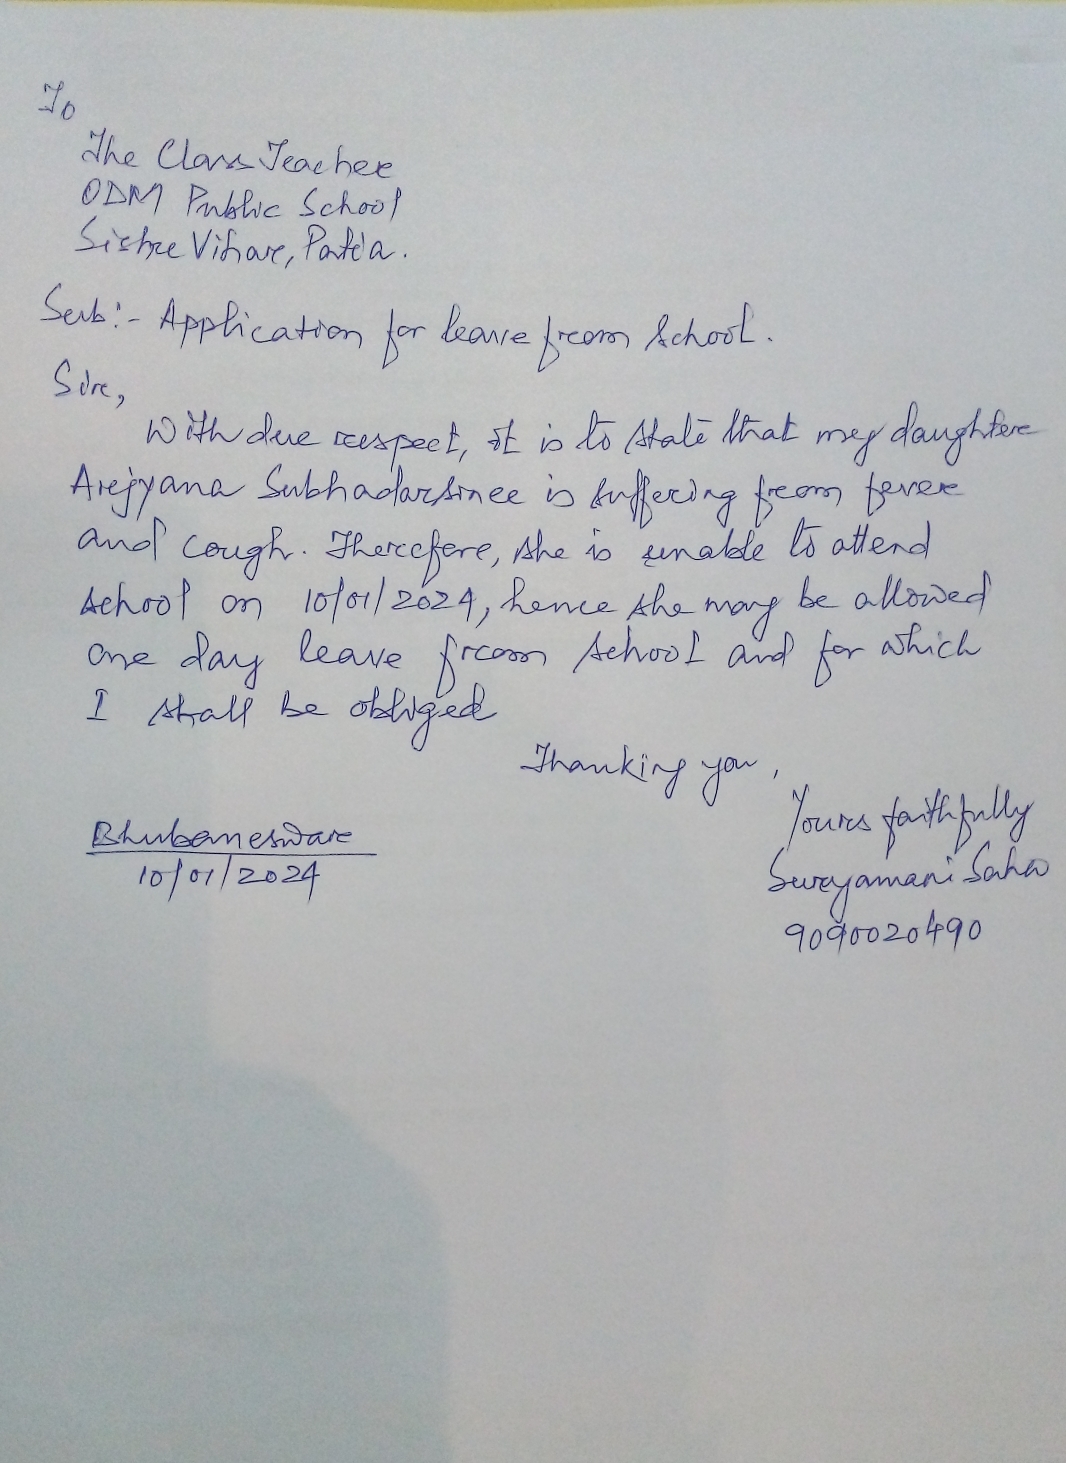 To
The Class Teacher
ODM Public School
Sishre Vihar, Patia.
Sub:- Application for leave from School.
Sir,
With due respect, it is to state that my daughter
Arjyana Subhadarsinee is suffering from fever
and cough. Therefore, she is unable to attend
school on 10/01/2024, hence she may be allowed
one day leave from school and for which
I shall be obliged
Thanking you,
Yours faithfully
Bhubaneswar
Suryamani Sahu
10/01/2024
9090020490